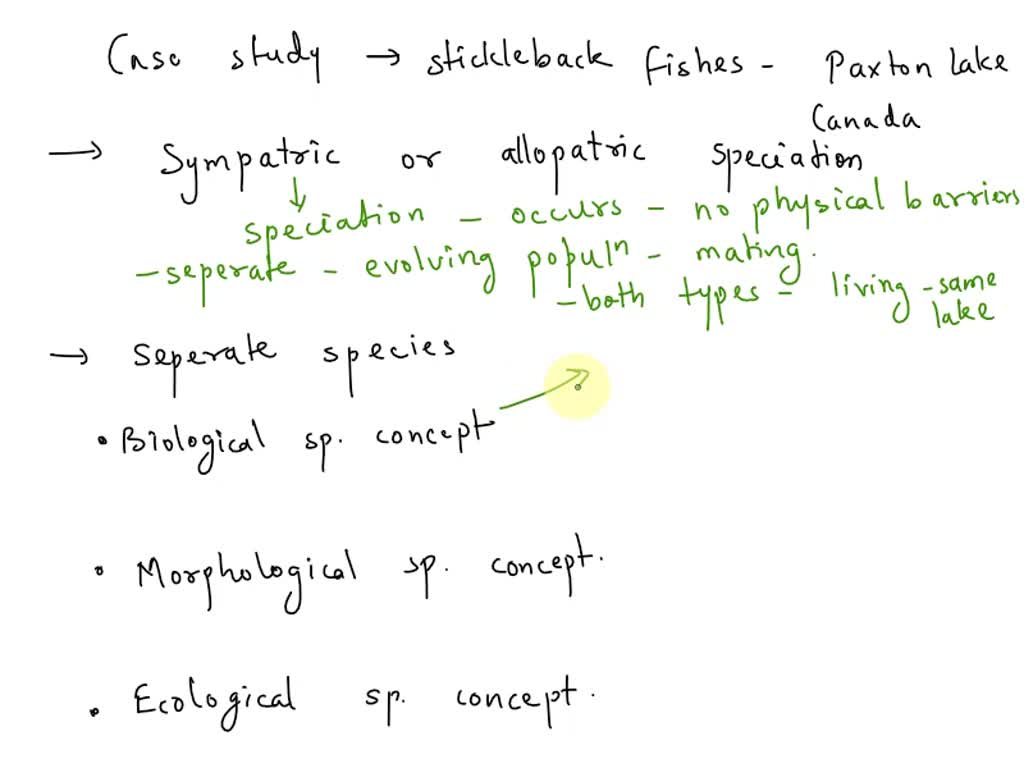 Case study → stickleback fishes - Paxton lake
Canada
→ Sympatric or allopatric speciation
speciation - occurs - no physical barriers
- seperate - evolving populⁿ - mating.
- both types - living - same
lake
→ seperate species
• Biological sp. concept
• Morphological sp. concept.
• Ecological sp. concept.